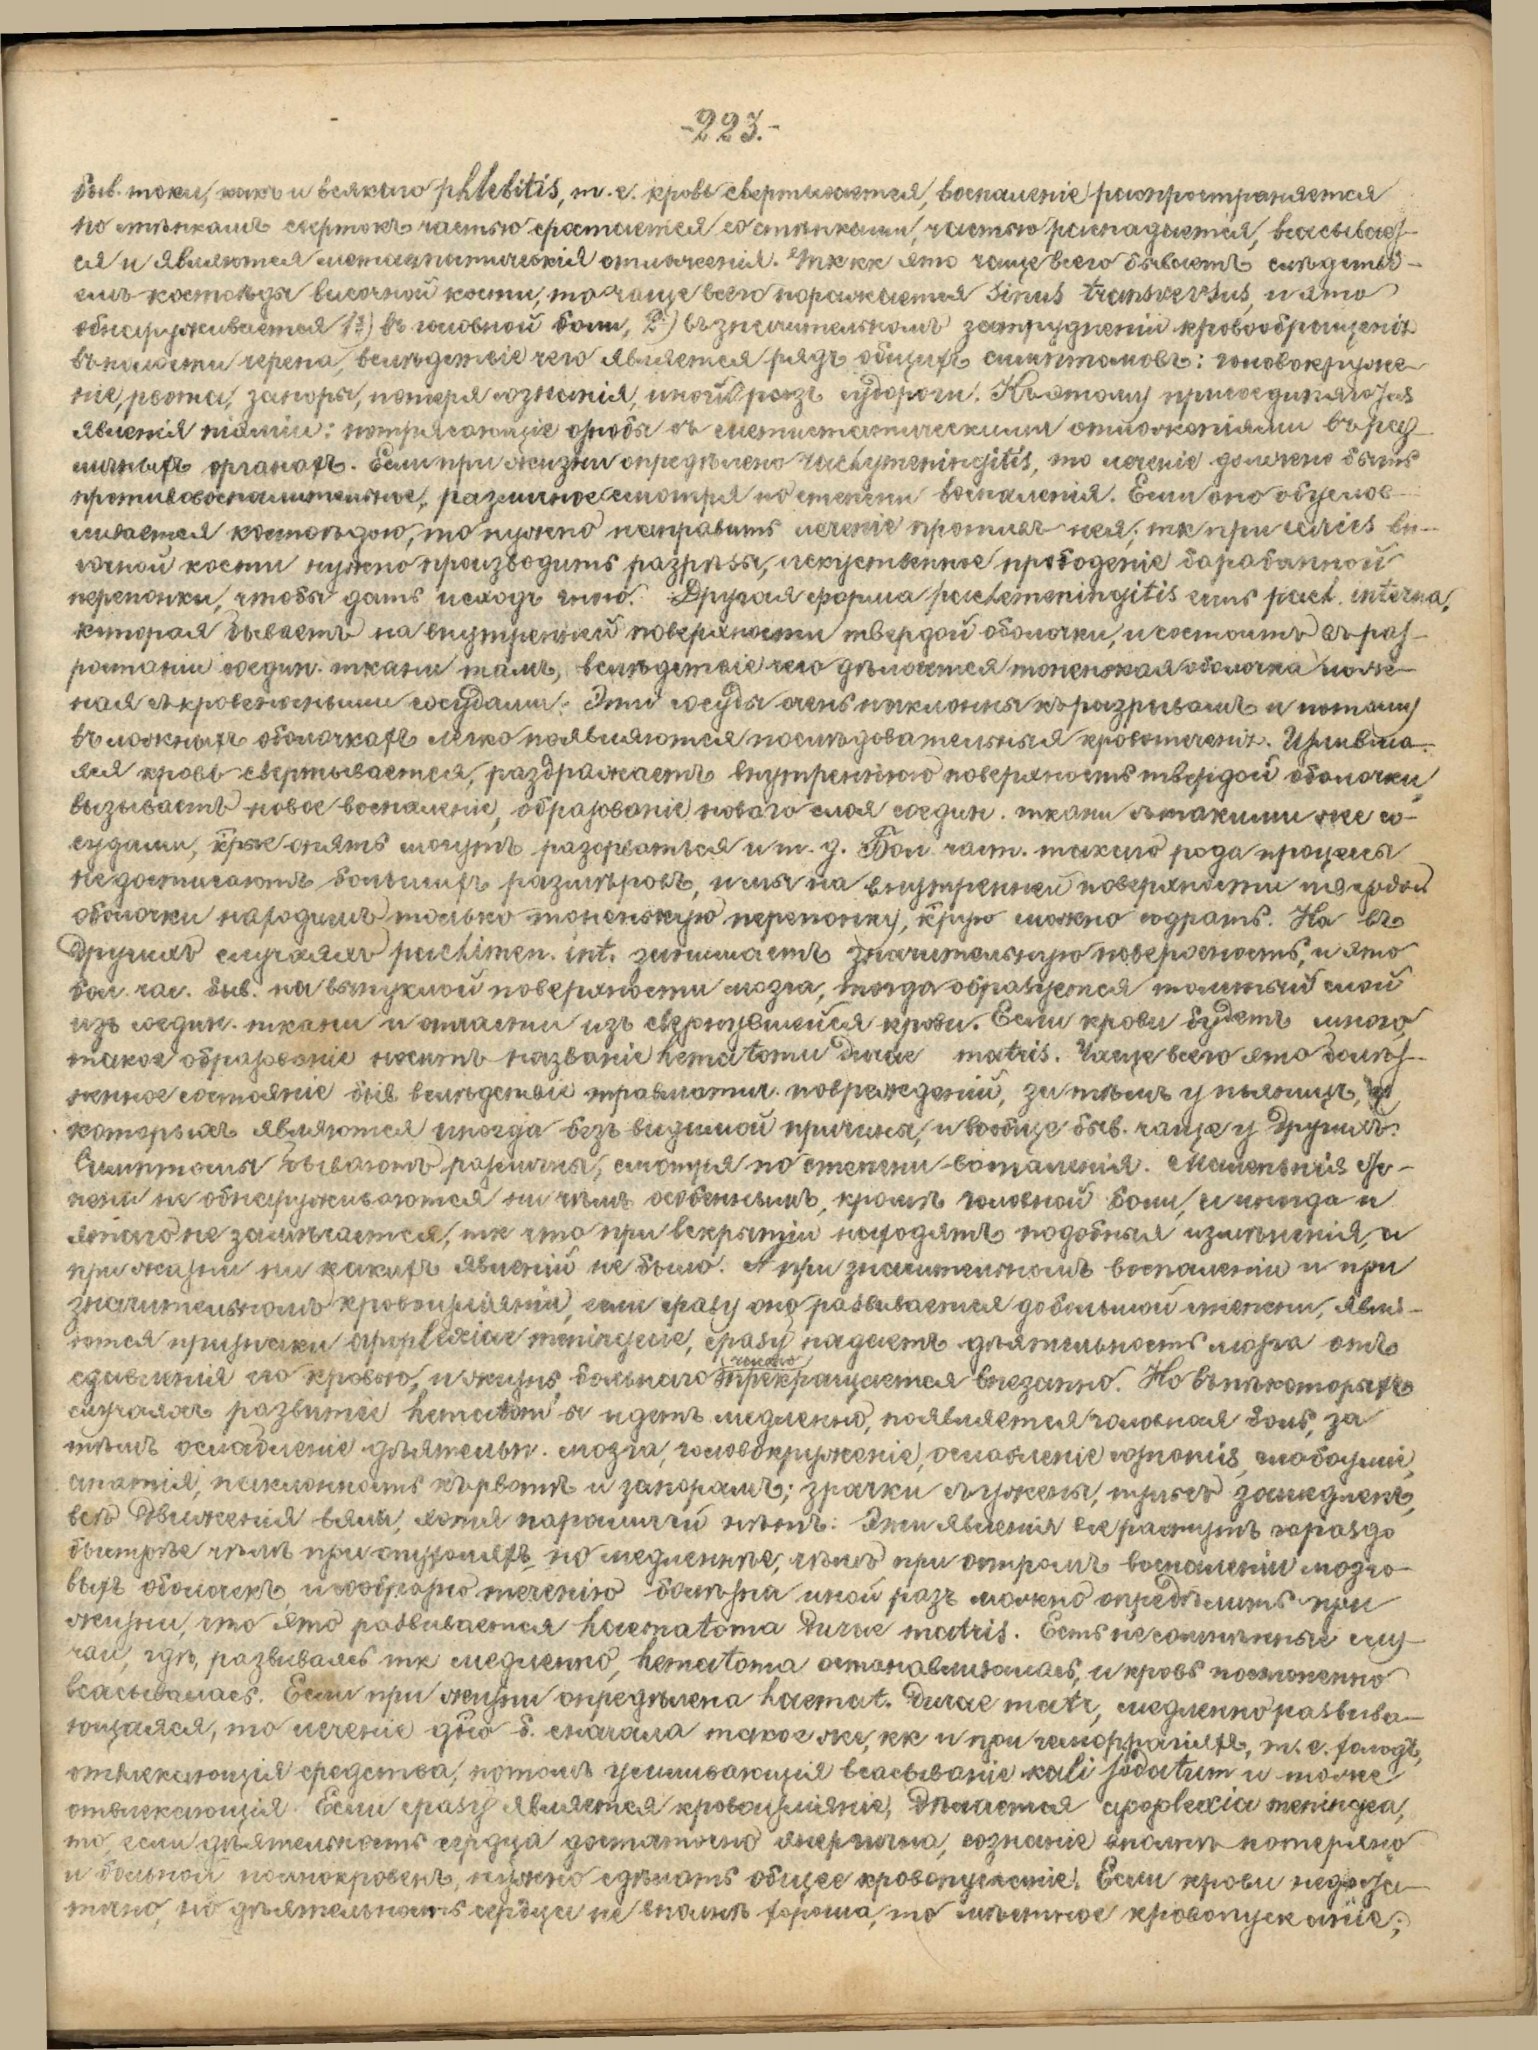 -223.-
быв. таки, какъ и всякаго phlebitis, т. е. кровь свертывается, воспаленіе распространяется
по стѣнкамъ свертокъ частью сростается со стѣнками, частью распадается, всасывает-
ся и являются метастатическія отложенія. Тккк это чаще всего бываетъ слѣдстві-
емъ костоѣды височной кости, то чаще всего поражается Sinus transversus, и это
обнаруживается 1) въ головной боли, 2) въ значительномъ затрудненіи кровообращенія
въ полости черепа, вслѣдствіе чего является рядъ общихъ симптомовъ: головокруже-
ніе, рвота, запоры, потеря сознанія, иной разъ судороги. Къ этому присоединяются
явленія піэміи: потрясающіе ознобы съ метастатическими отложеніями въ раз-
личныхъ органахъ. Если при жизни опредѣлено pachymeningitis, то леченіе должно быть
противовоспалительное, различное смотря по степени воспаленія. Если оно обуслов-
ливается костоѣдою, то нужно направить леченіе противъ нея; тк при caries ви-
сочной кости нужно производить разрѣзы, искуственное прободеніе барабанной
перепонки, чтобы дать исходъ гною. Другая форма pachemeningitis есть pach. interna,
которая бываетъ на внутренней поверхности твердой оболочки, и состоитъ въ раз-
ростаніи соедин. ткани тамъ, вслѣдствіе чего дѣлается тоненькая оболочка лож-
ная съ кровеносными сосудами. Эти сосуды очень наклонны къ разрывамъ и потому
въ ложныхъ оболочкахъ легко появляются послѣдовательныя кровотеченія. Излившa-
яся кровь свертывается, раздражаетъ внутреннюю поверхность твердой оболочки,
вызываетъ новое воспаленіе, образованіе новаго слоя соедин. ткани съ такими же со-
судами, крые опять могутъ разорваться и т. д. Бол. част. такого рода процессы
не достигаютъ большихъ размѣровъ, и мы на внутренней поверхности твердой
оболочки находимъ только тоненькую перепонку, крую можно содрать. Но въ
другихъ случаяхъ pachimen. int. занимаетъ значительную поверхность, и это
бол. час. быв. на выпуклой поверхности мозга, тогда образуется толстый слой
изъ соедин. ткани и отчасти изъ свернувшейся крови. Если крови будетъ много,
такое образованіе носитъ названіе hematomu durae matris. Чаще всего это болѣз-
ненное состояніе быв вслѣдствіе травматич. поврежденій, затѣмъ у пьяницъ, у
которыхъ являются иногда безъ видимой причины, и вообще быв. чаще у другихъ.
Симптомы бываютъ различны, смотря по степени воспаленія. Маленькія сте-
пени не обнаруживаются ни чѣмъ особеннымъ, кромѣ головной боли, а иногда и
этого не замѣчается, тк что при вскрытіи находятъ подобныя измѣненія, а
при жизни ни какихъ явленій не было. А при значительномъ воспаленіи и при
значительномъ кровоизліяніи, если сразу оно развивается до большой степени, явля-
ются признаки apoplexiae meningeae, сразу падаетъ дѣятельность мозга отъ
сдавленія его кровью, и жизнь больного прекращается внезапно. Но въ нѣкоторыхъ
случаяхъ развитіе hematom'ы идетъ медленно, появляется головная боль, за
тѣмъ ослабленіе дѣятельн. мозга, головокруженіе, ослабленіе сознанія, слабоуміе,
апатія, наклонность къ рвотѣ и запорамъ; зрачки съужены, пульсъ замедленъ,
всѣ движенія вялы, хотя параличей нѣтъ. Эти явленія все растутъ гораздо
быстрѣе чѣмъ при опухоляхъ, но медленнѣе, чѣмъ при остромъ воспаленіи мозго-
выхъ оболочекъ, и сообразно теченію болѣзни иной разъ можно опредѣлить при
жизни, что это развивается haematoma durae matris. Есть несомнѣнные слу-
чаи, гдѣ, развиваясь тк медленно, hematoma останавливалась, и кровь постепенно
всасывалась. Если при жизни опредѣлена haemat. durae matr, медленно развива-
ющаяся, то леченіе дно б. сначала такое же, кк и при геморрагіяхъ, т. е. холодъ,
отвлекающія средства, потомъ усиливающія всасываніе kali jodatum и тоже
отвлекающія. Если сразу является кровоизліяніе, дѣлается apoplexia meningea,
то, если дѣятельность сердца достаточно энергична, сознаніе вполнѣ потеряно
и больной полнокровенъ, нужно сдѣлать общее кровопусканіе. Если крови недоста-
точно, но дѣятельность сердца не вполнѣ хороша, то мѣстное кровопусканіе;